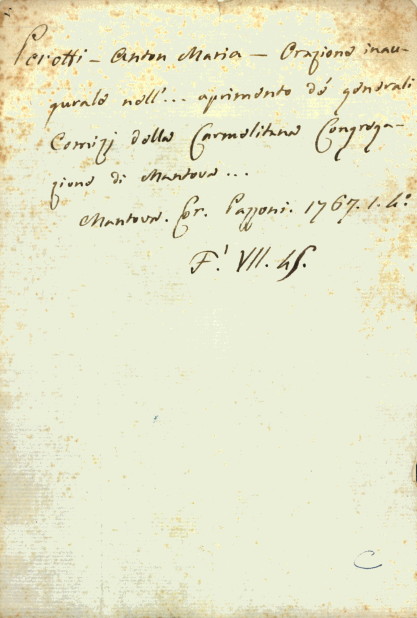 Perotti - Anton Maria - Orazione inau-
gurale nell'... aprimento de' generali
Comizj della Carmelitana Congrega-
zione di Mantova...
Mantova. Er. Pazzoni. 1767. 1. 4.º
F.' VII. 45.
C